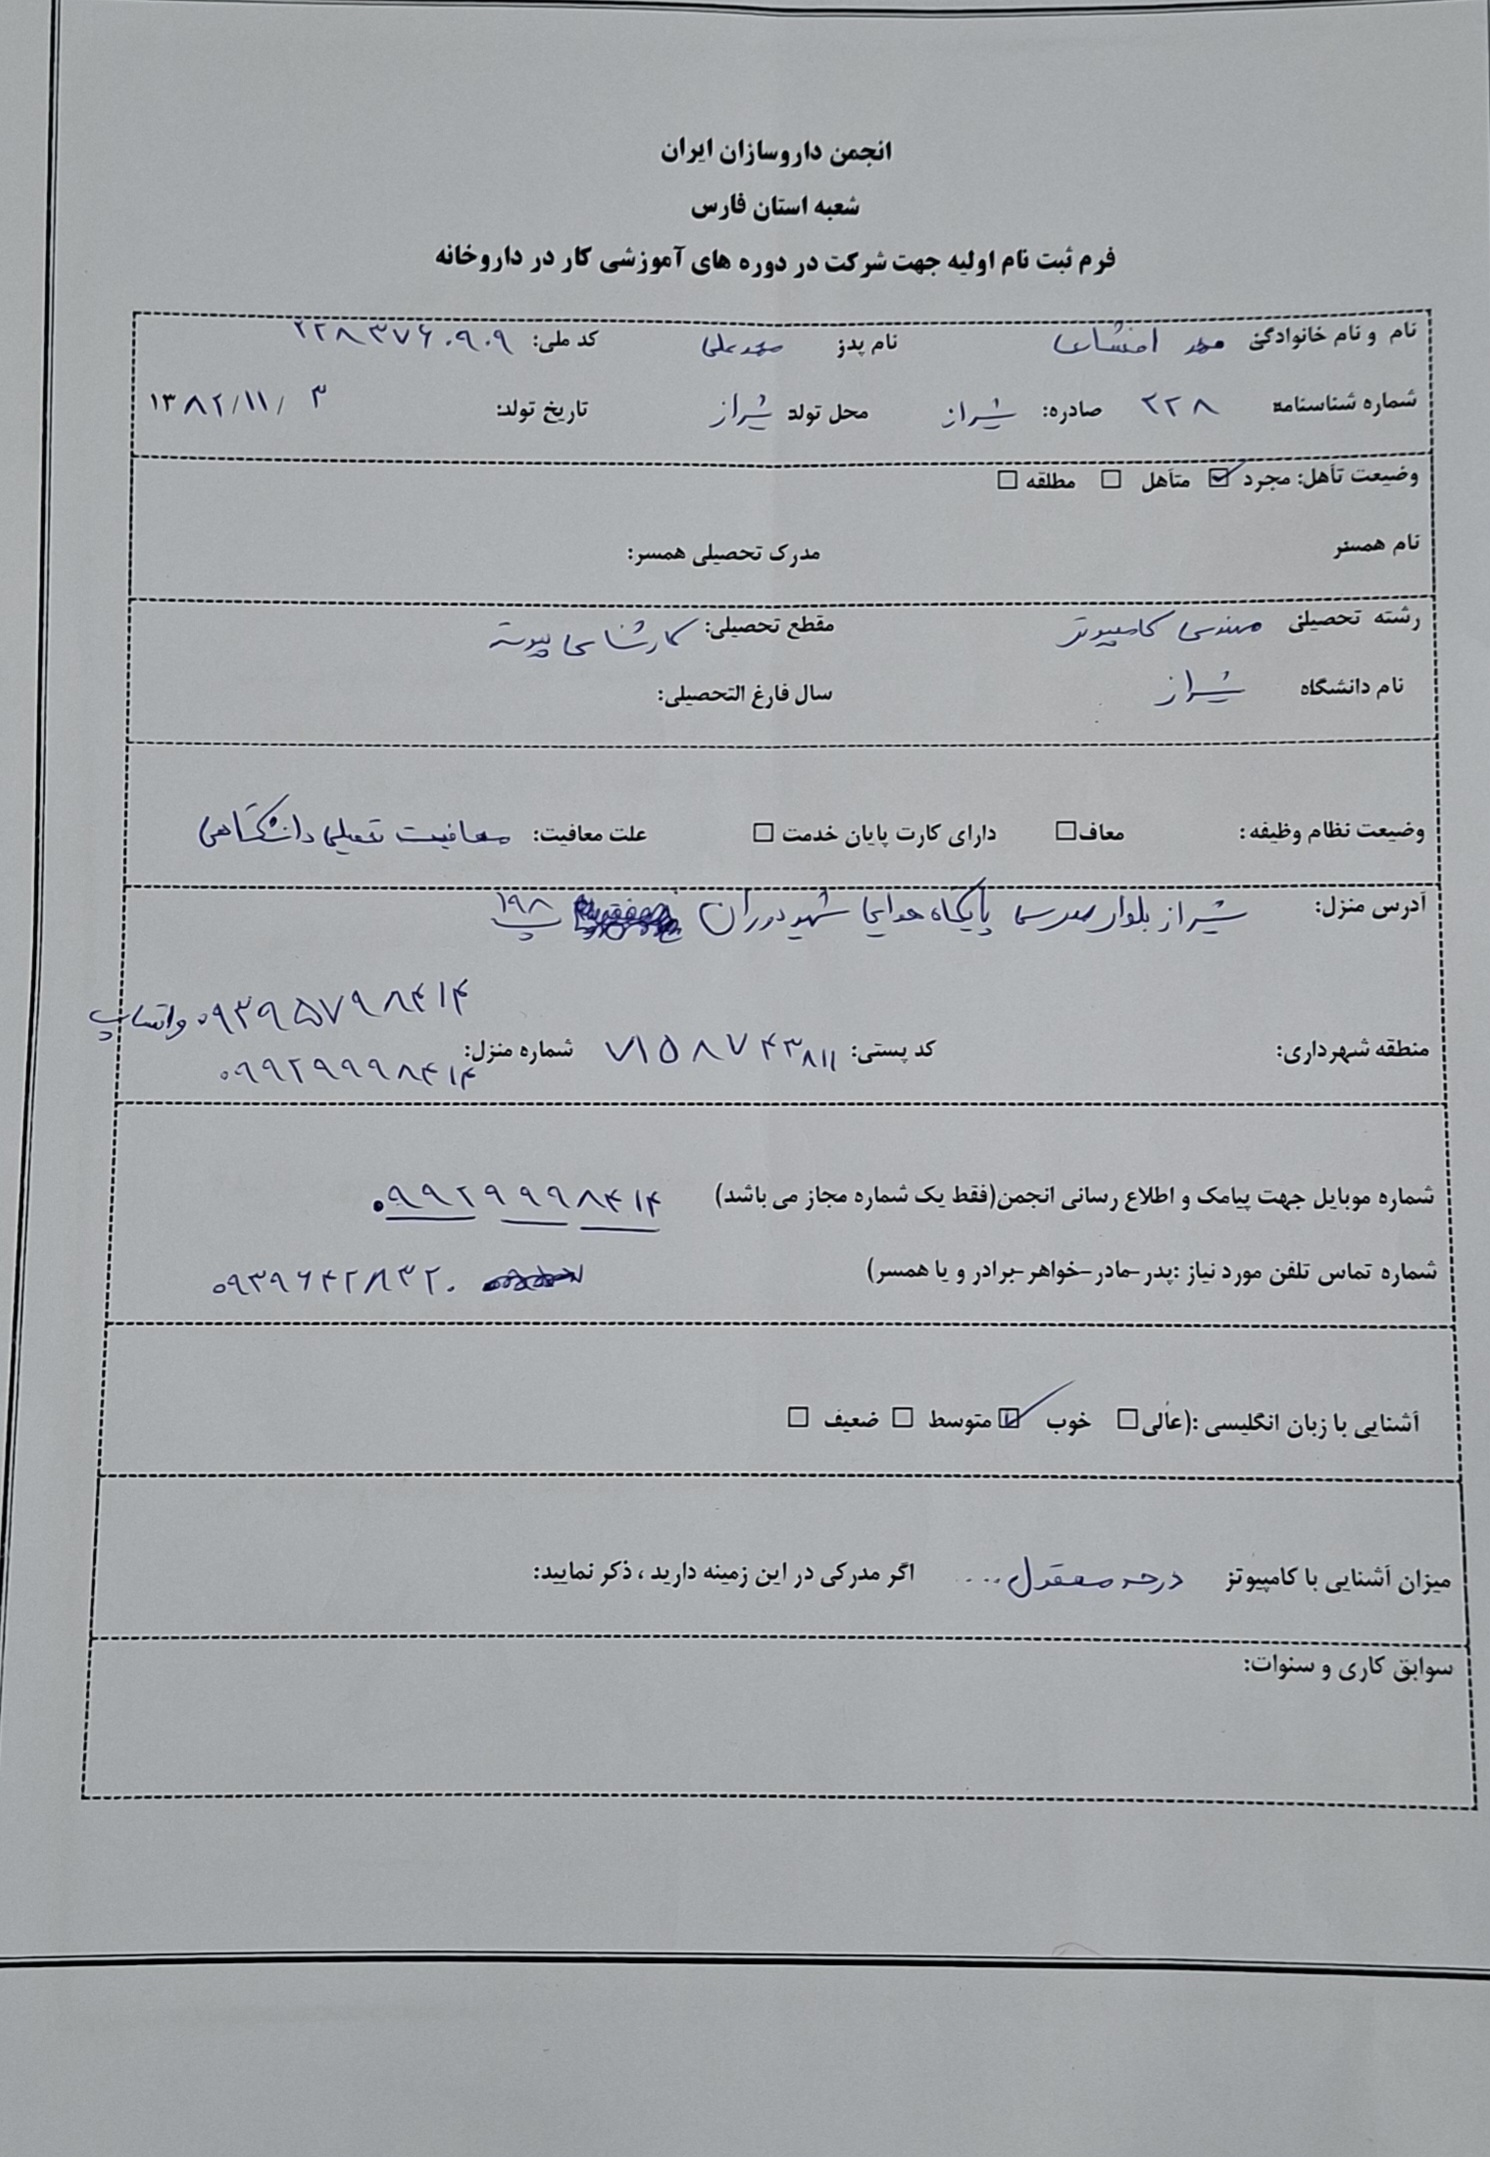 انجمن داروسازان ایران
شعبه استان فارس
فرم ثبت نام اولیه جهت شرکت در دوره های آموزشی کار در داروخانه
نام و نام خانوادگی: محمد افشاری نام پدر: محمدعلی کد ملی: ۲۲۸۳۷۶۰۹۰۹
شماره شناسنامه: ۲۲۸ صادره: شیراز محل تولد: شیراز تاریخ تولد: ۱۳۸۲/۱۱/۳
وضیعت تأهل: مجرد ☑ متأهل ☐ مطلقه ☐
نام همسر: مدرک تحصیلی همسر:
رشته تحصیلی: مهندسی کامپیوتر مقطع تحصیلی: کارشناسی پیوسته
نام دانشگاه: شیراز سال فارغ التحصیلی:
وضیعت نظام وظیفه: معاف ☐ دارای کارت پایان خدمت ☐ علت معافیت: معافیت تحصیلی دانشگاهی
آدرس منزل: شیراز بلوار مدرس پایگاه هوایی شهید دوران پ ۱۹۸
۰۹۳۹۵۷۹۸۴۱۴ واتساپ
منطقه شهرداری: کد پستی: ۷۱۵۸۷۴۳۸۱۱ شماره منزل: ۰۹۹۲۹۹۹۸۴۱۴
شماره موبایل جهت پیامک و اطلاع رسانی انجمن(فقط یک شماره مجاز می باشد) ۰۹۹۲۹۹۹۸۴۱۴
شماره تماس تلفن مورد نیاز :پدر-مادر-خواهر-برادر و یا همسر) ۰۹۳۹۶۴۲۸۳۲۰
آشنایی با زبان انگلیسی :(عالی ☐ خوب ☑ متوسط ☐ ضعیف ☐
میزان آشنایی با کامپیوتر: درحد معقول .... اگر مدرکی در این زمینه دارید ، ذکر نمایید:
سوابق کاری و سنوات: